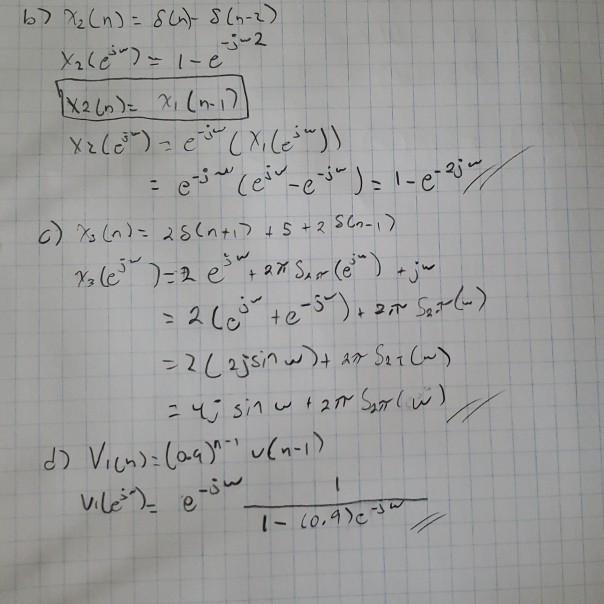 b) x₂(n) = δ(n) - δ(n-2)
X₂(e^jω) = 1 - e^-jω2
x2(n) = x₁(n-1)
X2(e^jω) = e^-jω (X₁(e^jω))
= e^-jω (e^jω - e^-jω) = 1 - e^-2jω
c) x₃(n) = 2δ(n+1) + 5 + 2δ(n-1)
X₃(e^jω) = 2 e^jω + 2π S₂π(e^jω) + jω
= 2(e^jω + e^-jω) + 2π S₂π(ω)
= 2(2j sin ω) + 2π S₂π(ω)
= 4j sin ω + 2π S₂π(ω)
d) V₁(n) = (0.9)^n-1 u(n-1)
V₁(e^jω) = e^-jω 1 / 1 - (0.9)e^-jω